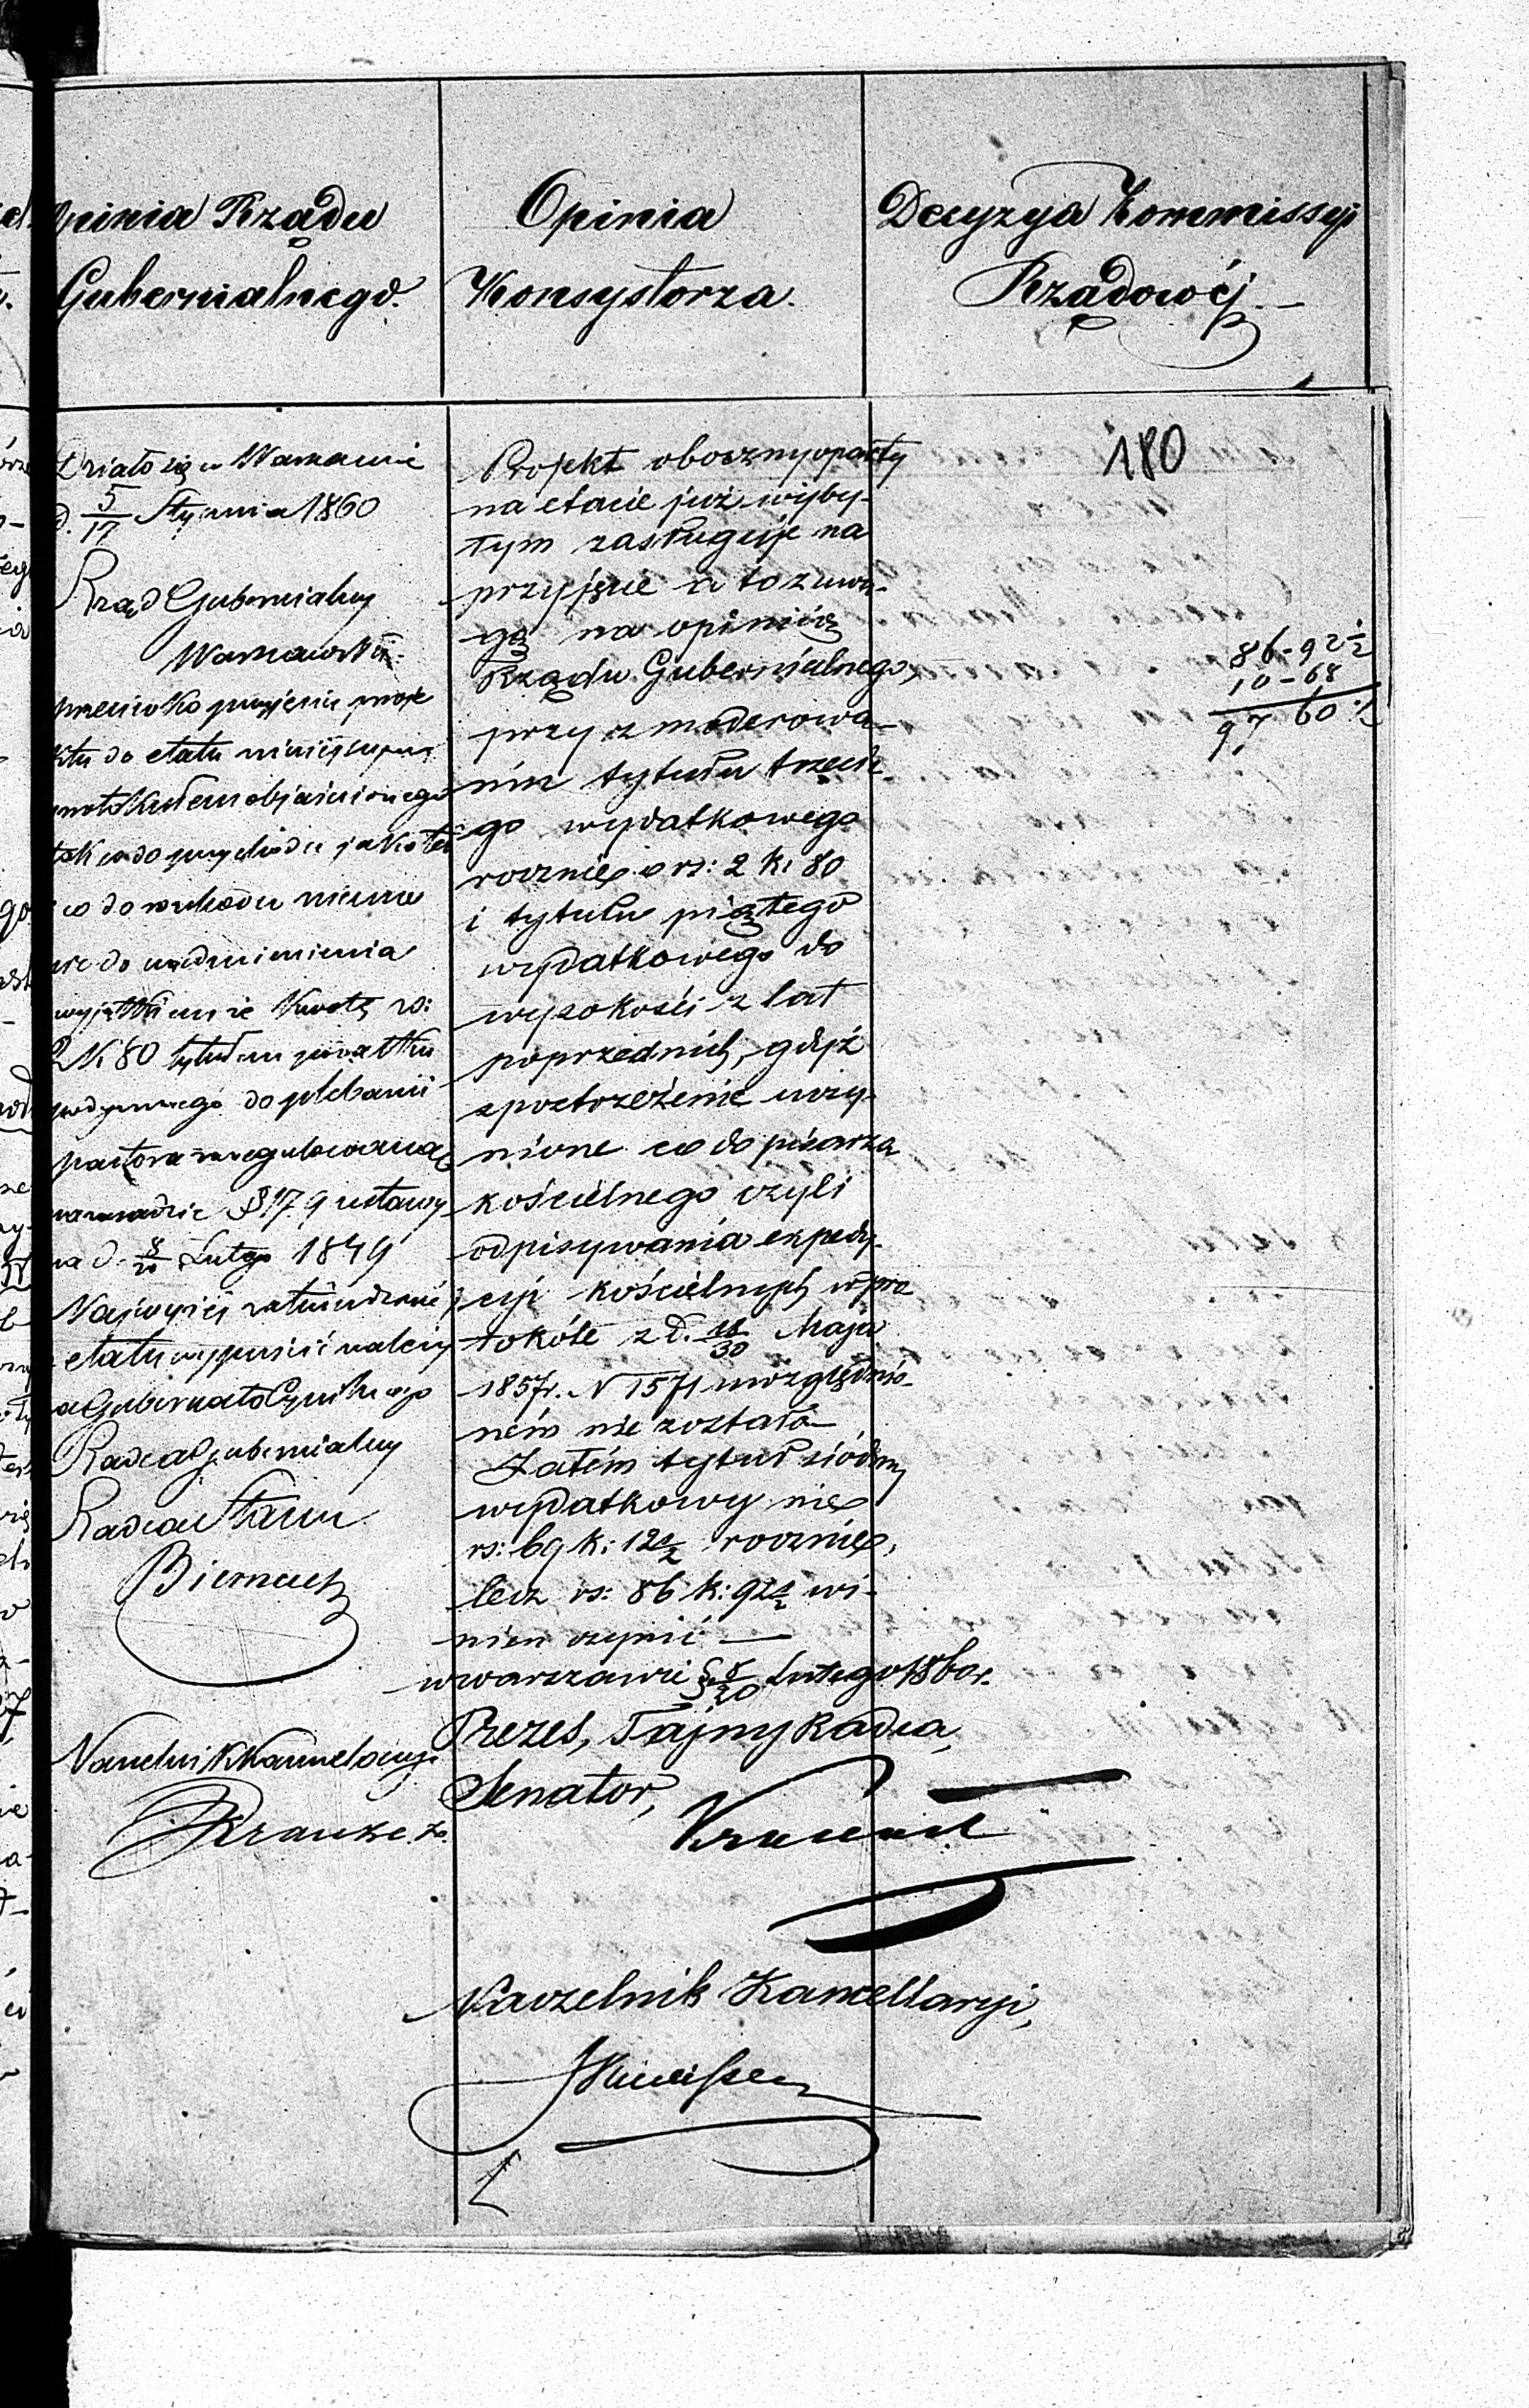 Opinia Rządu
Gubernialnego.
Opinia
Konsystorza.
Decyzya Kommissyi
Rządowéj.
Działo się w Warszawie
d. 5/17 Stycznia 1860
Rząd Gubernialny
Warszawski
przeciwko przyjęciu proje
ktu do etatu niniejszym
protokułem objaśnionego
tak co do przychodu jako też
co do rozchodu niema
nic do nadmienienia
wyjątkiem że kwotę rs:
2 k 80 tytułem podatku
podymnego do plebanii
pastora
na zasadzie § 179 ustawy
na d. 8/20 Lutego 1849
Najwyżéj zatwierdzonéj z
etatu wypuścić należy
a Gubernatora Cywilnego
Radca Gubernialny
Radca Stanu
Biernacki
Naczelnik Kancelaryi
Krauze
Projekt oboczny oparty
na etacie już wyby-
tym zasługuje na
przyjęcie a to z uwa-
gą na opinią
Rządu Gubernialnego,
przy zmoderowa-
niu tytułu trzecie
go wydatkowego
rocznie o rs: 2 k: 80
i tytułu piątego
wydatkowego do
wysokości z lat
poprzednich, gdyż
spostrzeżenie uczy-
nione co do pisarza
kościelnego czyli
odpisywania expedy-
cyi kościelnych w pro
tokóle z d. 18/30 Maja
1857 r. N 1571 uwzględnio-
ném nie zostało
Zatém tytuł siódmy
wydatkowy nie
rs: 69 k: 12 1/2 rocznie,
lecz rs: 86 k: 92 1/2 wi-
nien czynić —
w Warszawie d. 8/20 Lutego 1860 r.
Prezes, Tajny Radca,
Senator,
Naczelnik Kancellaryi,
180
86-92 1/2
10-68
97 60 1/2